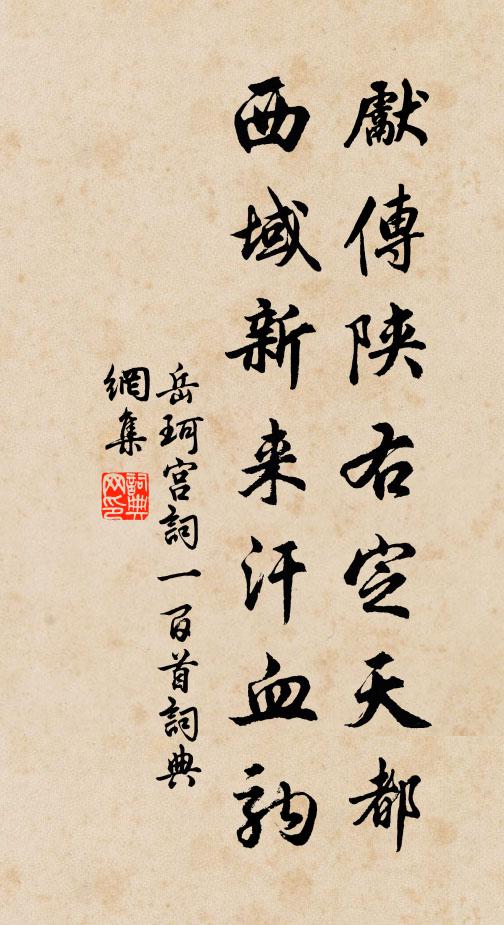 獻傳陝右定天都
西域新来汗血駒
岳珂宮詞一百首詞典
網集
詞典
网印